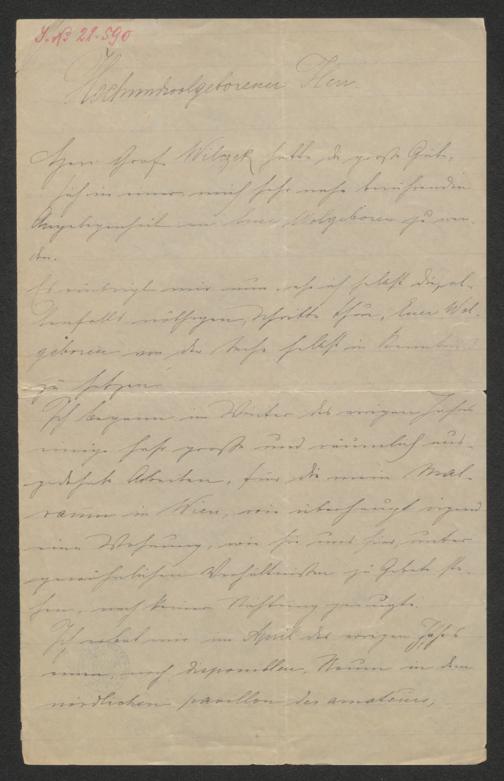 J.N. 21.590
Hochundwolgeborener Herr.
Herr Graf Wilczek hatte die große Güte,
sich in einer, mich sehr nahe berührenden
Angelegenheit an Euer Wolgeboren zu wen-
den.
Es erübrigt mir nun, ehe ich selbst die, al-
lenfalls nöthigen, Schritte thue, Euer Wol-
geboren von der Sache selbst in Kenntnis
zu setzen.
Ich begann im Winter des vorigen Jahres
einige sehr große und räumlich aus-
gedehnte Arbeiten, für die mein Mal-
raum in Wien, wie überhaupt irgend
eine Wohnung, wie sie uns hier, unter
gewöhnlichen Verhältnissen zu Gebote ste-
hen, nach keiner Richtung genügte.
Ich erbat mir im April des vorigen Jahres
einen, noch disponiblen, Raum in dem
nördlichen pavillon des amateurs,